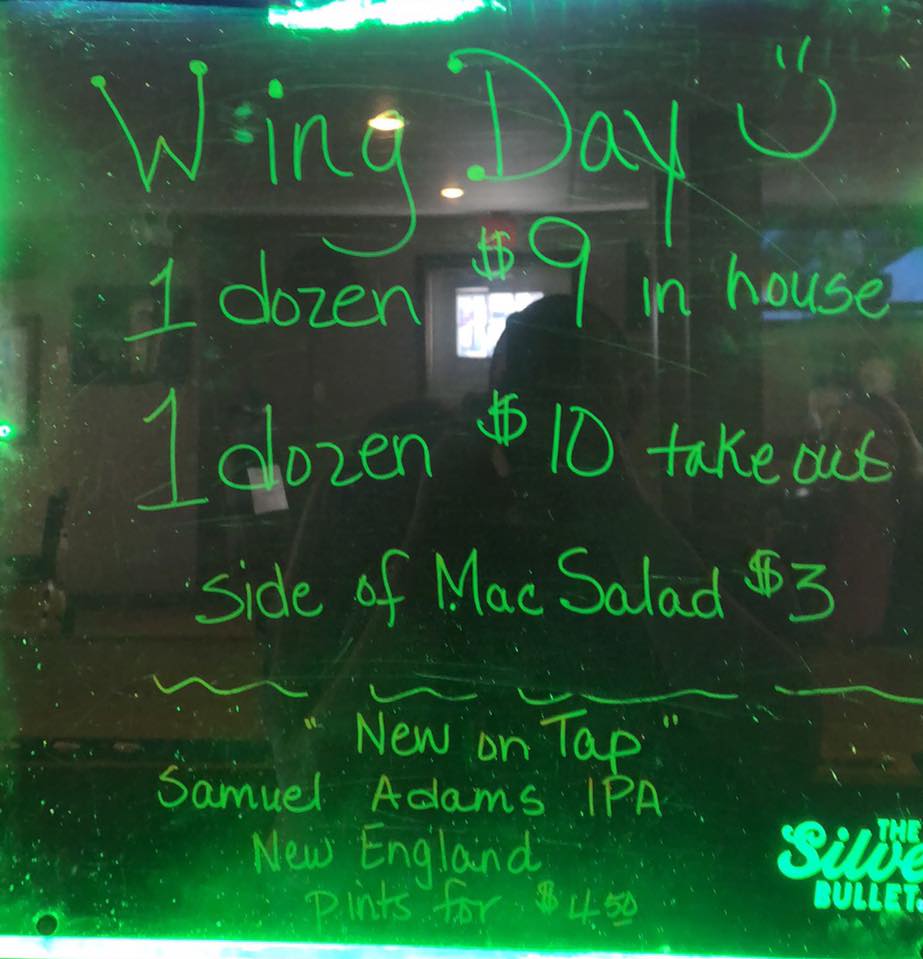 Wing Day
1 dozen $9 in house
1 dozen $10 take out
side of Mac Salad $3
" New on Tap "
Samuel Adams IPA
New England
pints for $4.50
THE
Silve
BULLET.